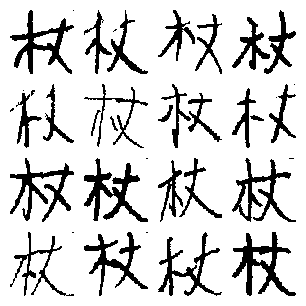 杖杖杖杖
杖杖杖杖
杖杖杖杖
杖杖杖杖